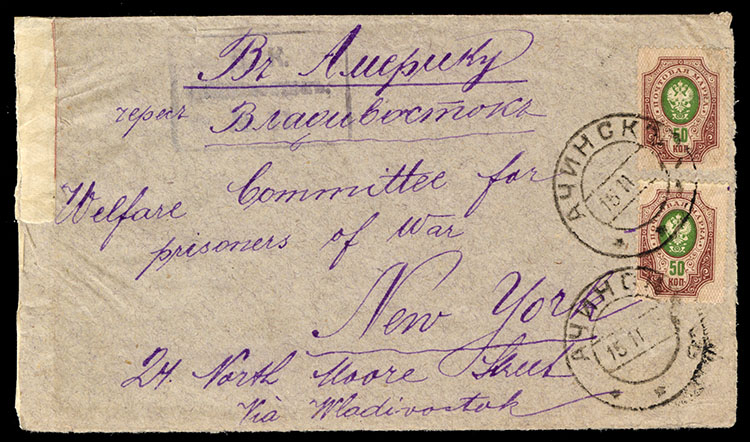 Въ Америку
черезъ
Владивостокъ
Welfare Committee for
prisoners of War
New York
24. North Moore Street
Via Wladivostok
ПОЧТОВАЯ МАРКА
50
КОП
АЧИНСКЪ
15 11
ПОЧТОВАЯ МАРКА
50
КОП
АЧИНСКЪ
15 11